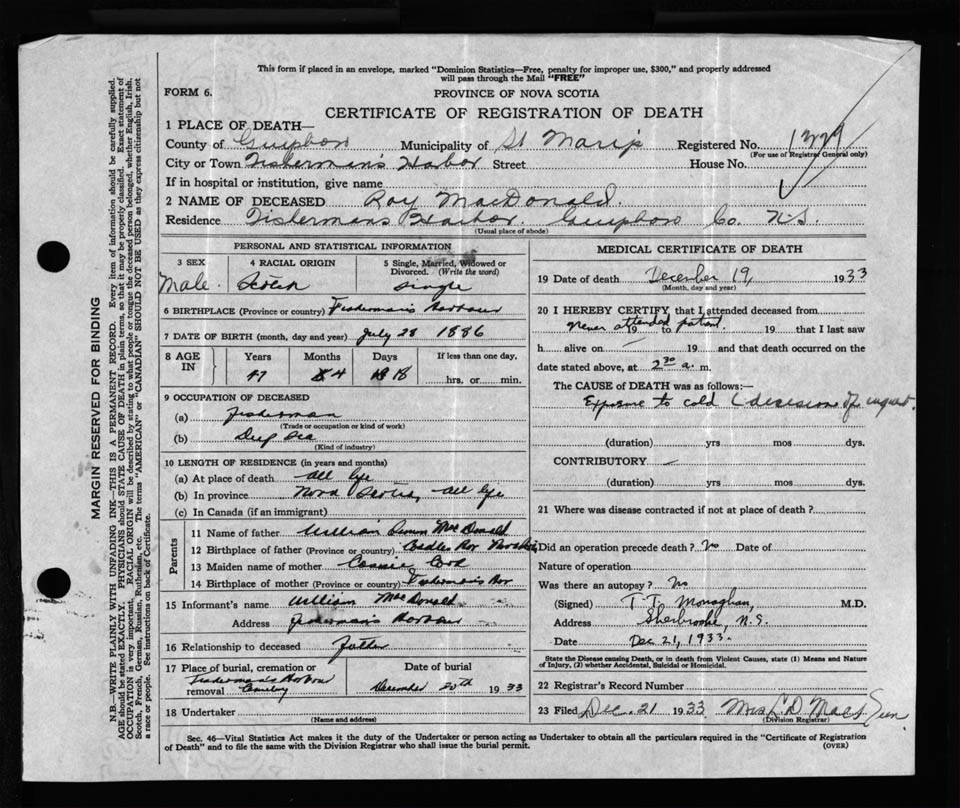 This form if placed in an envelope, marked "Dominion Statistics—Free, penalty for improper use, $300," and properly addressed
will pass through the Mail "FREE"
FORM 6.
PROVINCE OF NOVA SCOTIA
CERTIFICATE OF REGISTRATION OF DEATH
1 PLACE OF DEATH—
County of Guysboro Municipality of St Mary's Registered No. 1379
(For use of Registrar General only)
City or Town Fisherman's Harbor Street House No.
If in hospital or institution, give name
2 NAME OF DECEASED Roy MacDonald.
Residence Fishermans Harbor. Guysboro Co. N.S.
(Usual place of abode)
PERSONAL AND STATISTICAL INFORMATION
3 SEX 4 RACIAL ORIGIN 5 Single, Married, Widowed or
Divorced. (Write the word)
Male. Scotch Single
6 BIRTHPLACE (Province or country) Fisherman's Harbour
7 DATE OF BIRTH (month, day and year) July 28 1886
8 AGE IN Years Months Days If less than one day,
47 4 18 hrs. or min.
9 OCCUPATION OF DECEASED
(a) Fisherman
(Trade or occupation or kind of work)
(b) Deep Sea
(Kind of industry)
10 LENGTH OF RESIDENCE (in years and months)
(a) At place of death all life
(b) In province Nova Scotia, all life
(c) In Canada (if an immigrant)
Parents
11 Name of father William MacDonald
12 Birthplace of father (Province or country)
13 Maiden name of mother Cassie Cook
14 Birthplace of mother (Province or country) Fisherman's Hor
15 Informant's name William MacDonald
Address Fisherman's Harbour
16 Relationship to deceased Father
17 Place of burial, cremation or Date of burial
Fisherman's Harbour
removal Cemetery December 20th 1933
18 Undertaker
(Name and address)
MEDICAL CERTIFICATE OF DEATH
19 Date of death December 19, 1933
(Month, day and year)
20 I HEREBY CERTIFY, that I attended deceased from
Never attended patient.
19 to 19 that I last saw
h alive on — 19 and that death occurred on the
date stated above, at 2 30 a. m.
The CAUSE OF DEATH was as follows:—
Exposure to cold (decision of inquest.
(duration) yrs mos dys.
CONTRIBUTORY —
(duration) yrs. mos. dys.
21 Where was disease contracted if not at place of death?
Did an operation precede death? No Date of
Nature of operation
Was there an autopsy? No
(Signed) T. T. Monaghan, M.D.
Address Sherbrooke, N.S.
Date Dec. 21, 1933.
State the Disease causing Death, or in death from Violent Causes, state (1) Means and Nature
of Injury, (2) whether Accidental, Suicidal or Homicidal.
22 Registrar's Record Number
23 Filed Dec. 21 1933 Mrs
(Division Registrar)
Sec. 46—Vital Statistics Act makes it the duty of the Undertaker or person acting as Undertaker to obtain all the particulars required in the "Certificate of Registration
of Death" and to file the same with the Division Registrar who shall issue the burial permit.
(OVER)
MARGIN RESERVED FOR BINDING
N.B.—WRITE PLAINLY WITH UNFADING INK—THIS IS A PERMANENT RECORD. Every item of information should be carefully supplied.
AGE should be stated EXACTLY. PHYSICIANS should STATE CAUSE OF DEATH in plain terms, so that it may be properly classified. Exact statement of
OCCUPATION is very important. RACIAL ORIGIN will be described by stating to what people or tongue the deceased person belonged, whether English, Irish,
Scotch, French, German, Russian, Ruthenian, etc. The terms "AMERICAN" or "CANADIAN" SHOULD NOT BE USED as they express citizenship but not
a race or people. See instructions on back of Certificate.